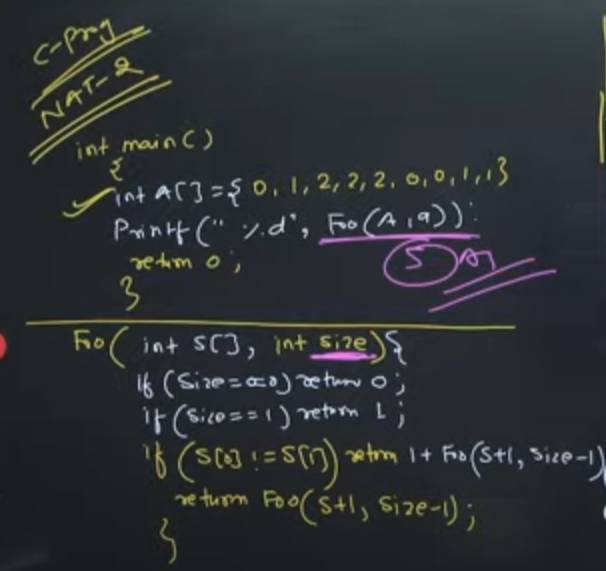 C-Prog
NAT-2
int main()
{
int A[] = { 0, 1, 2, 2, 2, 0, 0, 1, 1 }
Printf(" %d", Foo(A, 9));
return 0;
5 Ans
}
Foo( int S[], int size){
if (Size==0) return 0;
if (Size==1) return 1;
if (S[0] != S[1]) retrn 1+ Foo(S+1, Size-1)
return Foo(S+1, Size-1);
}